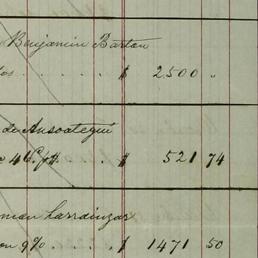 Benjamin Barton
los . . . . . $ 2500 "
de Ansoategui
$ 521 74
Larrainzar
on 9% . . . . $ 1471 50